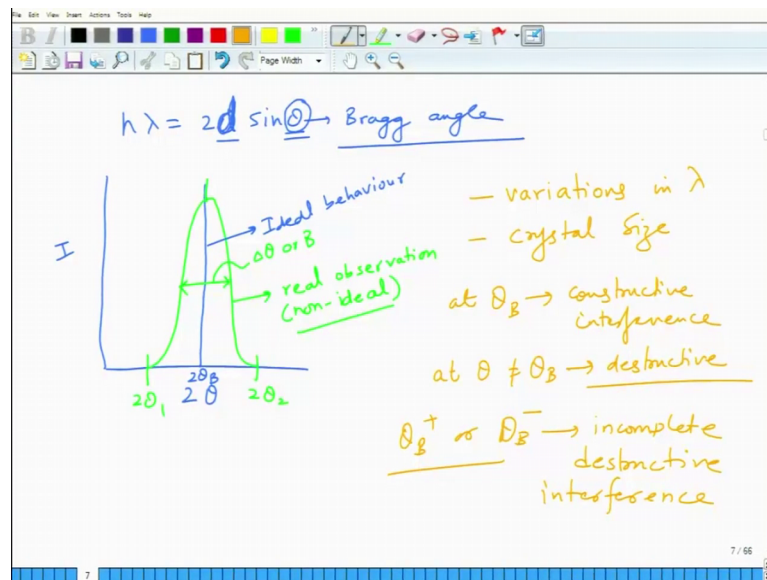 File Edit View Insert Actions Tools Help
B I
Page Width
nλ = 2d sinθ → Bragg angle
I
Ideal behaviour
Δθ or B
real observation
(non-ideal)
2θ_B
2θ₁ 2θ 2θ₂
— variations in λ
— crystal size
at θ_B → constructive
interference
at θ ≠ θ_B → destructive
θ_B⁺ or θ_B⁻ → incomplete
destructive
interference
7 / 66
7